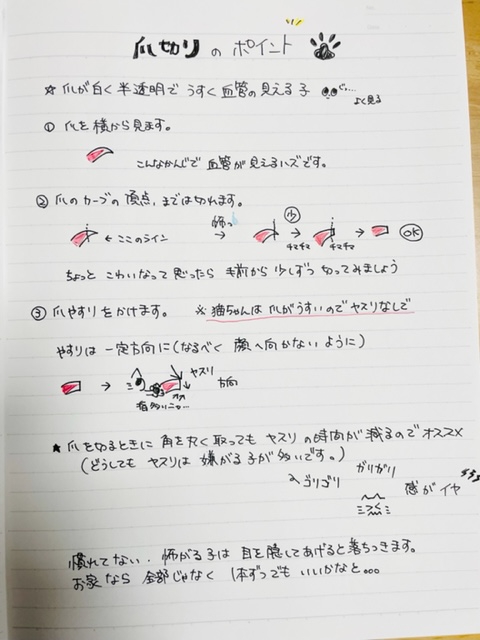 爪切りのポイント
☆ 爪が白く半透明で うすく血管の見える子
じー…
よく見る
① 爪を横から見ます。
こんなかんじで 血管が見えるハズです。
② 爪のカーブの頂点、までは切れます。
← ここのライン
怖っ
→
少
チマチマ
→
チマチマ
→
OK
ちょっと こわいなって思ったら 手前から少しずつ切ってみましょう
③ 爪やすりをかけます。 ※ 猫ちゃんは爪がうすいのでヤスリなしで
やすりは一定方向に(なるべく 顔へ向かないように)
→
ヤスリ
方向
★ 爪を切るときに 角を丸く取っても ヤスリの時間が減るのでオススメ
(どうしても ヤスリは 嫌がる子が多いです。)
ゴリゴリ
ガリガリ
感がイヤ
慣れてない・怖がる子は 目を隠してあげると落ちつきます。
お家なら 全部じゃなく 1本ずつでも いいかなと。。。